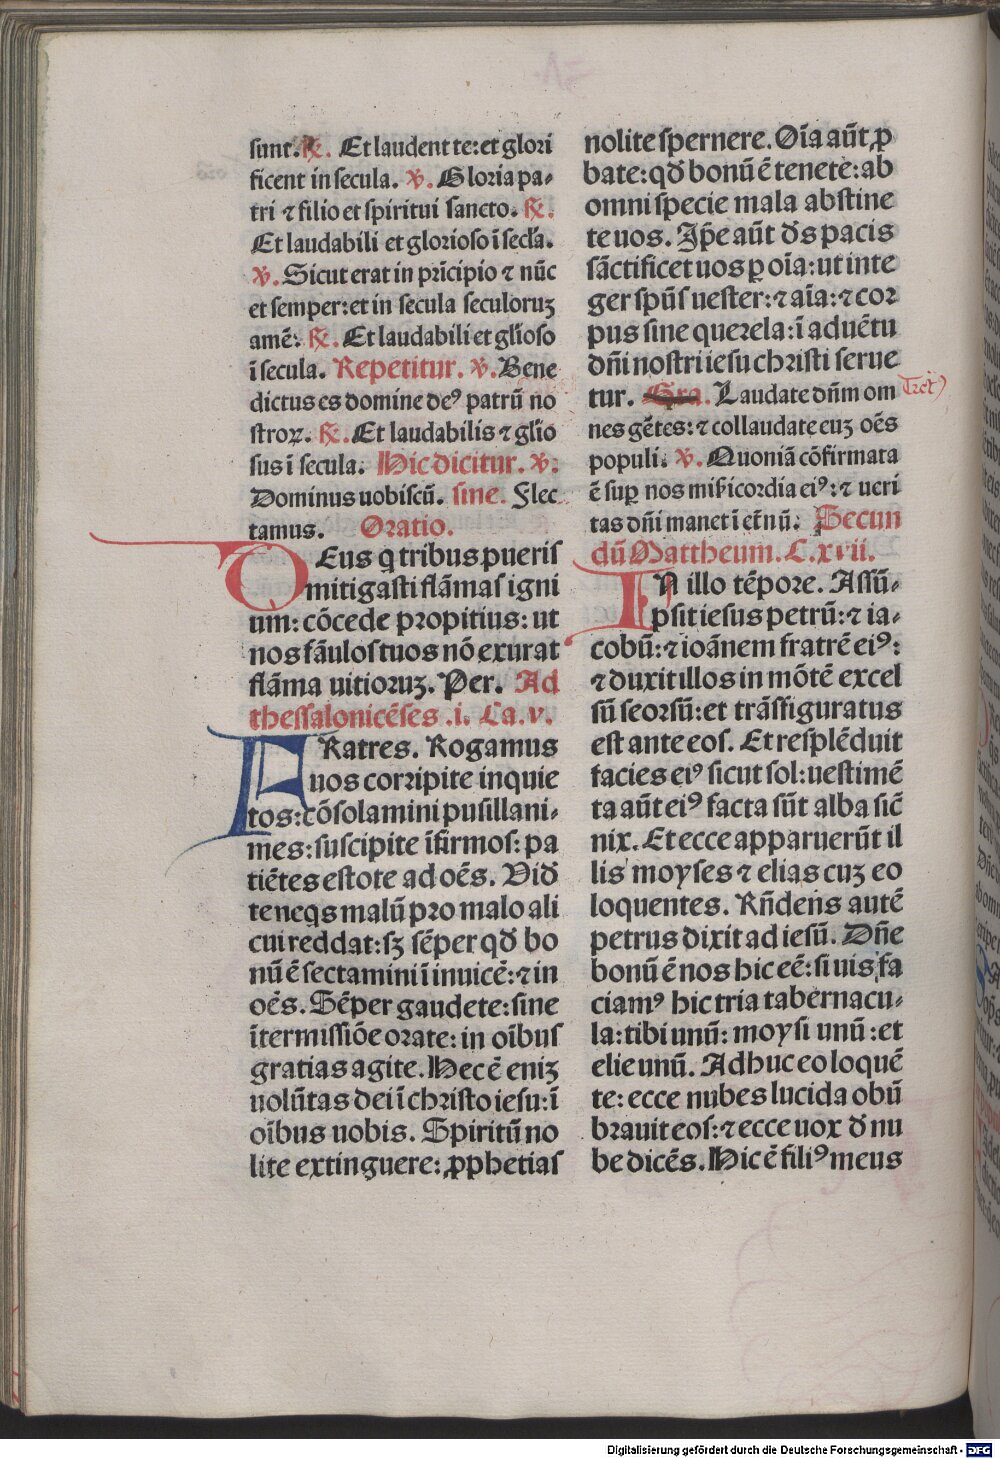 sunt. ℟. Et laudent te: et glori
ficent in secula. ℣. Gloria pa-
tri ⁊ filio et spiritui sancto. ℟.
Et laudabili et glorioso ī secła.
℣. Sicut erat in prīcipio ⁊ nūc
et semper: et in secula seculoruꝫ
amē: ℟. Et laudabili et glīoso
ī secula. Repetitur. ℣. Bene
dictus es domine deꝰ patrū no
stroꝝ. ℟. Et laudabilis ⁊ glīo
sus ī secula. Hic dicitur. ℣.
Dominus uobiscū. sine. Flec
tamus. Oratio.
DEus q̄ tribus pueris
mitigasti flāmas igni
um: cōcede propitius: ut
nos fāulos tuos nō exurat
flāma uitioruꝫ. Per. Ad
thessalonicēses .i. Ca. v.
FRatres. Rogamus
uos corripite inquie
tos: cōsolamini pusillani-
mes: suscipite īfirmos: pa
tiētes estote ad oēs. Vid̄
te neqs malū pro malo ali
cui reddat: sꝫ sēper qd̄ bo
nū ē sectamini ī inuicē: ⁊ in
oēs. Sēper gaudete: sine
ītermissiōe orate: in oībus
gratias agite. Hec ē eniꝫ
uolūtas dei ī christo iesu: ī
oībus uobis. Spiritū no
lite extinguere: ꝓphetias
nolite spernere. Oīa aūt ꝓ
bate: qd̄ bonū ē tenete: ab
omni specie mala abstine
te uos. Ip̄e aūt d̄s pacis
sāctificet uos ꝑ oīa: ut inte
ger spūs uester: ⁊ aīa: ⁊ cor
pus sine querela: ī aduētu
dn̄i nostri iesu christi serue
tur. Gra. Laudate dn̄m om
Tract
nes gētes: ⁊ collaudate euꝫ oēs
populi. ℣. Quoniā cōfirmata
ē suꝑ nos misīcordia eiꝰ: ⁊ ueri
tas dn̄i manet ī et̄nū. Secun
dū Mattheum. C. xvii.
IN illo tēpore. Assū-
psit iesus petrū: ⁊ ia-
cobū: ⁊ ioānem fratrē eiꝰ:
⁊ duxit illos in mōtē excel
sū seorsū: et trāsfiguratus
est ante eos. Et resplēduit
facies eiꝰ sicut sol: uestimē
ta aūt eiꝰ facta sūt alba sic̄
nix. Et ecce apparuerūt il
lis moyses ⁊ elias cuꝫ eo
loquentes. Rn̄dens autē
petrus dixit ad iesū. Dn̄e
bonū ē nos hic eē: si uis fa
ciamꝰ hic tria tabernacu-
la: tibi unū: moysi unū: et
elie unū. Adhuc eo loquē
te: ecce nubes lucida obū
brauit eos: ⁊ ecce uox d̄ nu
be dicēs. Hic ē filiꝰ meus
Digitalisierung gefördert durch die Deutsche Forschungsgemeinschaft - DFG